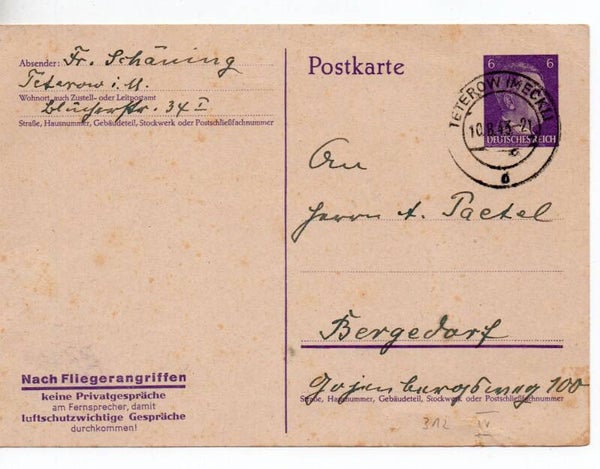 Absender: Fr. Schäning
Teterow i. M.
Wohnort, auch Zustell- oder Leitpostamt
Blücherstr. 34 I
Straße, Hausnummer, Gebäudeteil, Stockwerk oder Postschließfachnummer
Nach Fliegerangriffen
keine Privatgespräche
am Fernsprecher, damit
luftschutzwichtige Gespräche
durchkommen!
Postkarte
6 6
DEUTSCHES REICH
TETEROW (MECKL)
10.8.43-21
d
An
Herrn A. Paetel
Bergedorf
Gojenbergsweg 100
Straße, Hausnummer, Gebäudeteil, Stockwerk oder Postschließfachnummer
312 IV